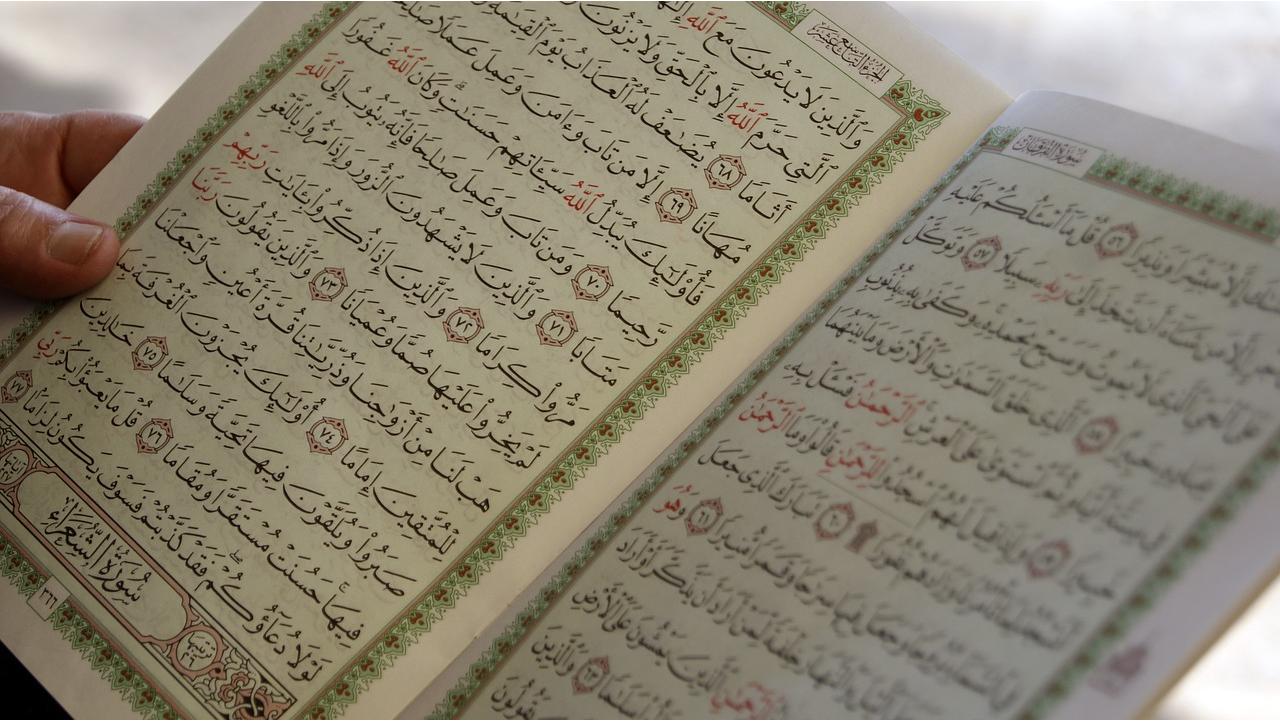 سُورَةُ الفُرْقَانِ
إِلَّا مُبَشِّرًا وَنَذِيرًا ٥٦ قُلْ مَآ أَسْـَٔلُكُمْ عَلَيْهِ
أَجْرٍ إِلَّا مَن شَآءَ أَن يَتَّخِذَ إِلَىٰ رَبِّهِۦ سَبِيلًا ٥٧ وَتَوَكَّلْ
عَلَى ٱلْحَىِّ ٱلَّذِى لَا يَمُوتُ وَسَبِّحْ بِحَمْدِهِۦ وَكَفَىٰ بِهِۦ بِذُنُوبِ
عِبَادِهِۦ خَبِيرًا ٥٨ ٱلَّذِى خَلَقَ ٱلسَّمَٰوَٰتِ وَٱلْأَرْضَ وَمَا بَيْنَهُمَا
فِى سِتَّةِ أَيَّامٍ ثُمَّ ٱسْتَوَىٰ عَلَى ٱلْعَرْشِ ٱلرَّحْمَٰنُ فَسْـَٔلْ بِهِۦ
خَبِيرًا ٥٩ وَإِذَا قِيلَ لَهُمُ ٱسْجُدُوا۟ لِلرَّحْمَٰنِ قَالُوا۟ وَمَا ٱلرَّحْمَٰنُ
أَنَسْجُدُ لِمَا تَأْمُرُنَا وَزَادَهُمْ نُفُورًا ۩ ٦٠ تَبَارَكَ ٱلَّذِى جَعَلَ
فِى ٱلسَّمَآءِ بُرُوجًا وَجَعَلَ فِيهَا سِرَٰجًا وَقَمَرًا مُّنِيرًا ٦١ وَهُوَ
ٱلَّيْلَ وَٱلنَّهَارَ خِلْفَةً لِّمَنْ أَرَادَ أَن يَذَّكَّرَ أَوْ أَرَادَ
ٱلرَّحْمَٰنِ ٱلَّذِينَ يَمْشُونَ عَلَى ٱلْأَرْضِ
سَلَٰمًا ٦٣ وَٱلَّذِينَ
يَقُولُونَ
الجُزْءُ التَّاسِعَ عَشَرَ
وَٱلَّذِينَ لَا يَدْعُونَ مَعَ ٱللَّهِ إِلَٰهًا
ٱلَّتِى حَرَّمَ ٱللَّهُ إِلَّا بِٱلْحَقِّ وَلَا يَزْنُونَ
أَثَامًا ٦٨ يُضَٰعَفْ لَهُ ٱلْعَذَابُ يَوْمَ ٱلْقِيَٰمَةِ
مُهَانًا ٦٩ إِلَّا مَن تَابَ وَءَامَنَ وَعَمِلَ عَمَلًا صَٰلِحًا
فَأُو۟لَٰٓئِكَ يُبَدِّلُ ٱللَّهُ سَيِّـَٔاتِهِمْ حَسَنَٰتٍ ۗ وَكَانَ ٱللَّهُ غَفُورًا
رَّحِيمًا ٧٠ وَمَن تَابَ وَعَمِلَ صَٰلِحًا فَإِنَّهُۥ يَتُوبُ إِلَى ٱللَّهِ
مَتَابًا ٧١ وَٱلَّذِينَ لَا يَشْهَدُونَ ٱلزُّورَ وَإِذَا مَرُّوا۟ بِٱللَّغْوِ
مَرُّوا۟ كِرَامًا ٧٢ وَٱلَّذِينَ إِذَا ذُكِّرُوا۟ بِـَٔايَٰتِ رَبِّهِمْ
لَمْ يَخِرُّوا۟ عَلَيْهَا صُمًّا وَعُمْيَانًا ٧٣ وَٱلَّذِينَ يَقُولُونَ رَبَّنَا
هَبْ لَنَا مِنْ أَزْوَٰجِنَا وَذُرِّيَّٰتِنَا قُرَّةَ أَعْيُنٍ وَٱجْعَلْنَا
لِلْمُتَّقِينَ إِمَامًا ٧٤ أُو۟لَٰٓئِكَ يُجْزَوْنَ ٱلْغُرْفَةَ بِمَا
صَبَرُوا۟ وَيُلَقَّوْنَ فِيهَا تَحِيَّةً وَسَلَٰمًا ٧٥ خَٰلِدِينَ
فِيهَا ۚ حَسُنَتْ مُسْتَقَرًّا وَمُقَامًا ٧٦ قُلْ مَا يَعْبَؤُا۟ بِكُمْ رَبِّى
لَوْلَا دُعَآؤُكُمْ ۖ فَقَدْ كَذَّبْتُمْ فَسَوْفَ يَكُونُ لِزَامًا ٧٧
سُورَةُ الشُّعَرَاءِ
٣٦٦